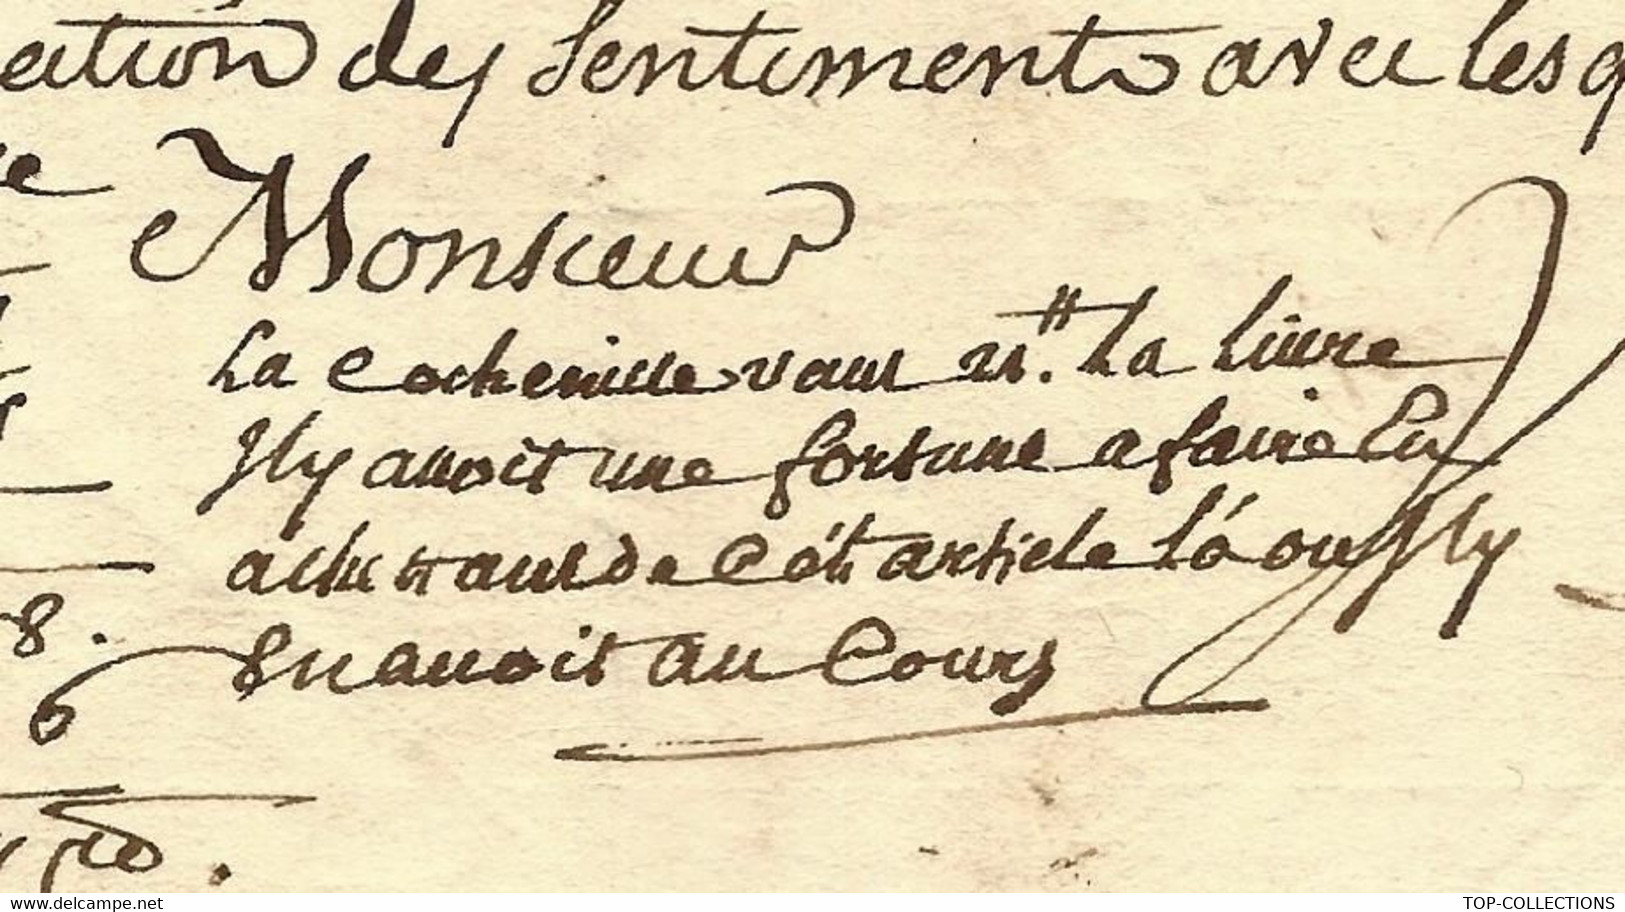 eation des Sentiments avec lesq
re Monsieur
La Cochenille vaut 21.# La Livre
Il y auoit une fortune a faire En
achettant de Cét article là ou Il y
En auoit au Cours
8.
6
delcampe.net TOP-COLLECTIONS